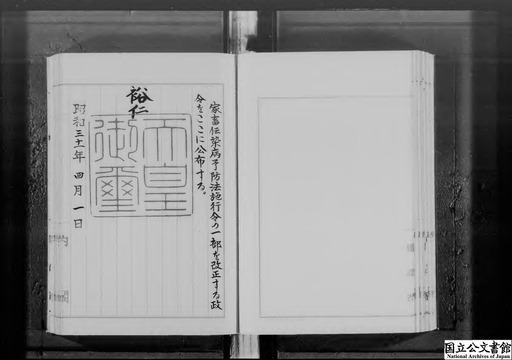 家畜伝染病予防法施行令の一部を改正する政
令をここに公布する。
裕仁
天皇
御璽
昭和三十一年四月一日
国立公文書館
National Archives of Japan